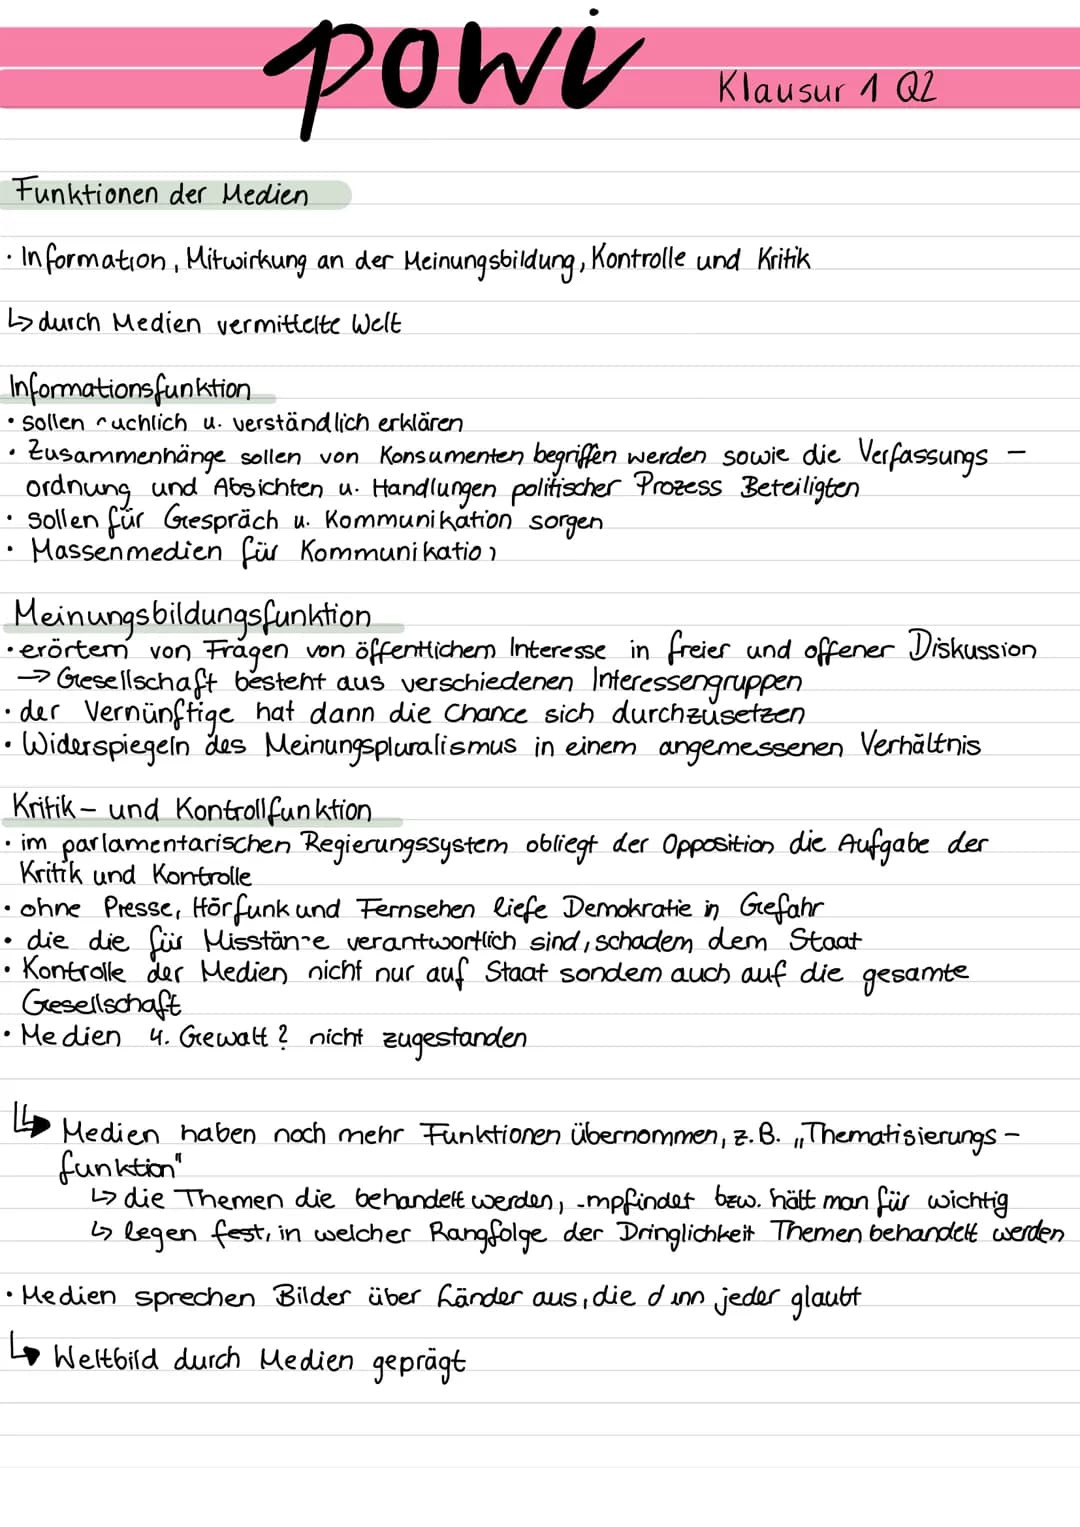 powi
Klausur 1 Q2
Funktionen der Medien
· Information, Mitwirkung an der Meinungsbildung, Kontrolle und Kritik
↳ durch Medien vermittelte Welt
Informationsfunktion
• sollen u. verständlich erklären
• Zusammenhänge sollen von Konsumenten begriffen werden sowie die Verfassungs -
ordnung und Absichten u. Handlungen politischer Prozess Beteiligten
• sollen für Gespräch u. Kommunikation sorgen
• Massenmedien für Kommunikation
Meinungsbildungsfunktion
• erörtern von Fragen von öffentlichem Interesse in freier und offener Diskussion
→ Gesellschaft besteht aus verschiedenen Interessengruppen
• der Vernünftige hat dann die Chance sich durchzusetzen
• Widerspiegeln des Meinungspluralismus in einem angemessenen Verhältnis
Kritik - und Kontrollfunktion
• im parlamentarischen Regierungssystem obliegt der Opposition die Aufgabe der
Kritik und Kontrolle
• ohne Presse, Hörfunk und Fernsehen liefe Demokratie in Gefahr
• die die für verantwortlich sind, schadem dem Staat
• Kontrolle der Medien nicht nur auf Staat sondern auch auf die gesamte
Gesellschaft
• Medien 4. Gewalt? nicht zugestanden
↳ Medien haben noch mehr Funktionen übernommen, z.B. „Thematisierungs -
funktion"
↳ die Themen die behandelt werden, bzw. hält man für wichtig
↳ legen fest, in welcher Rangfolge der Dringlichkeit Themen behandelt werden
• Medien sprechen Bilder über Länder aus, die jeder glaubt
↳ Weltbild durch Medien geprägt